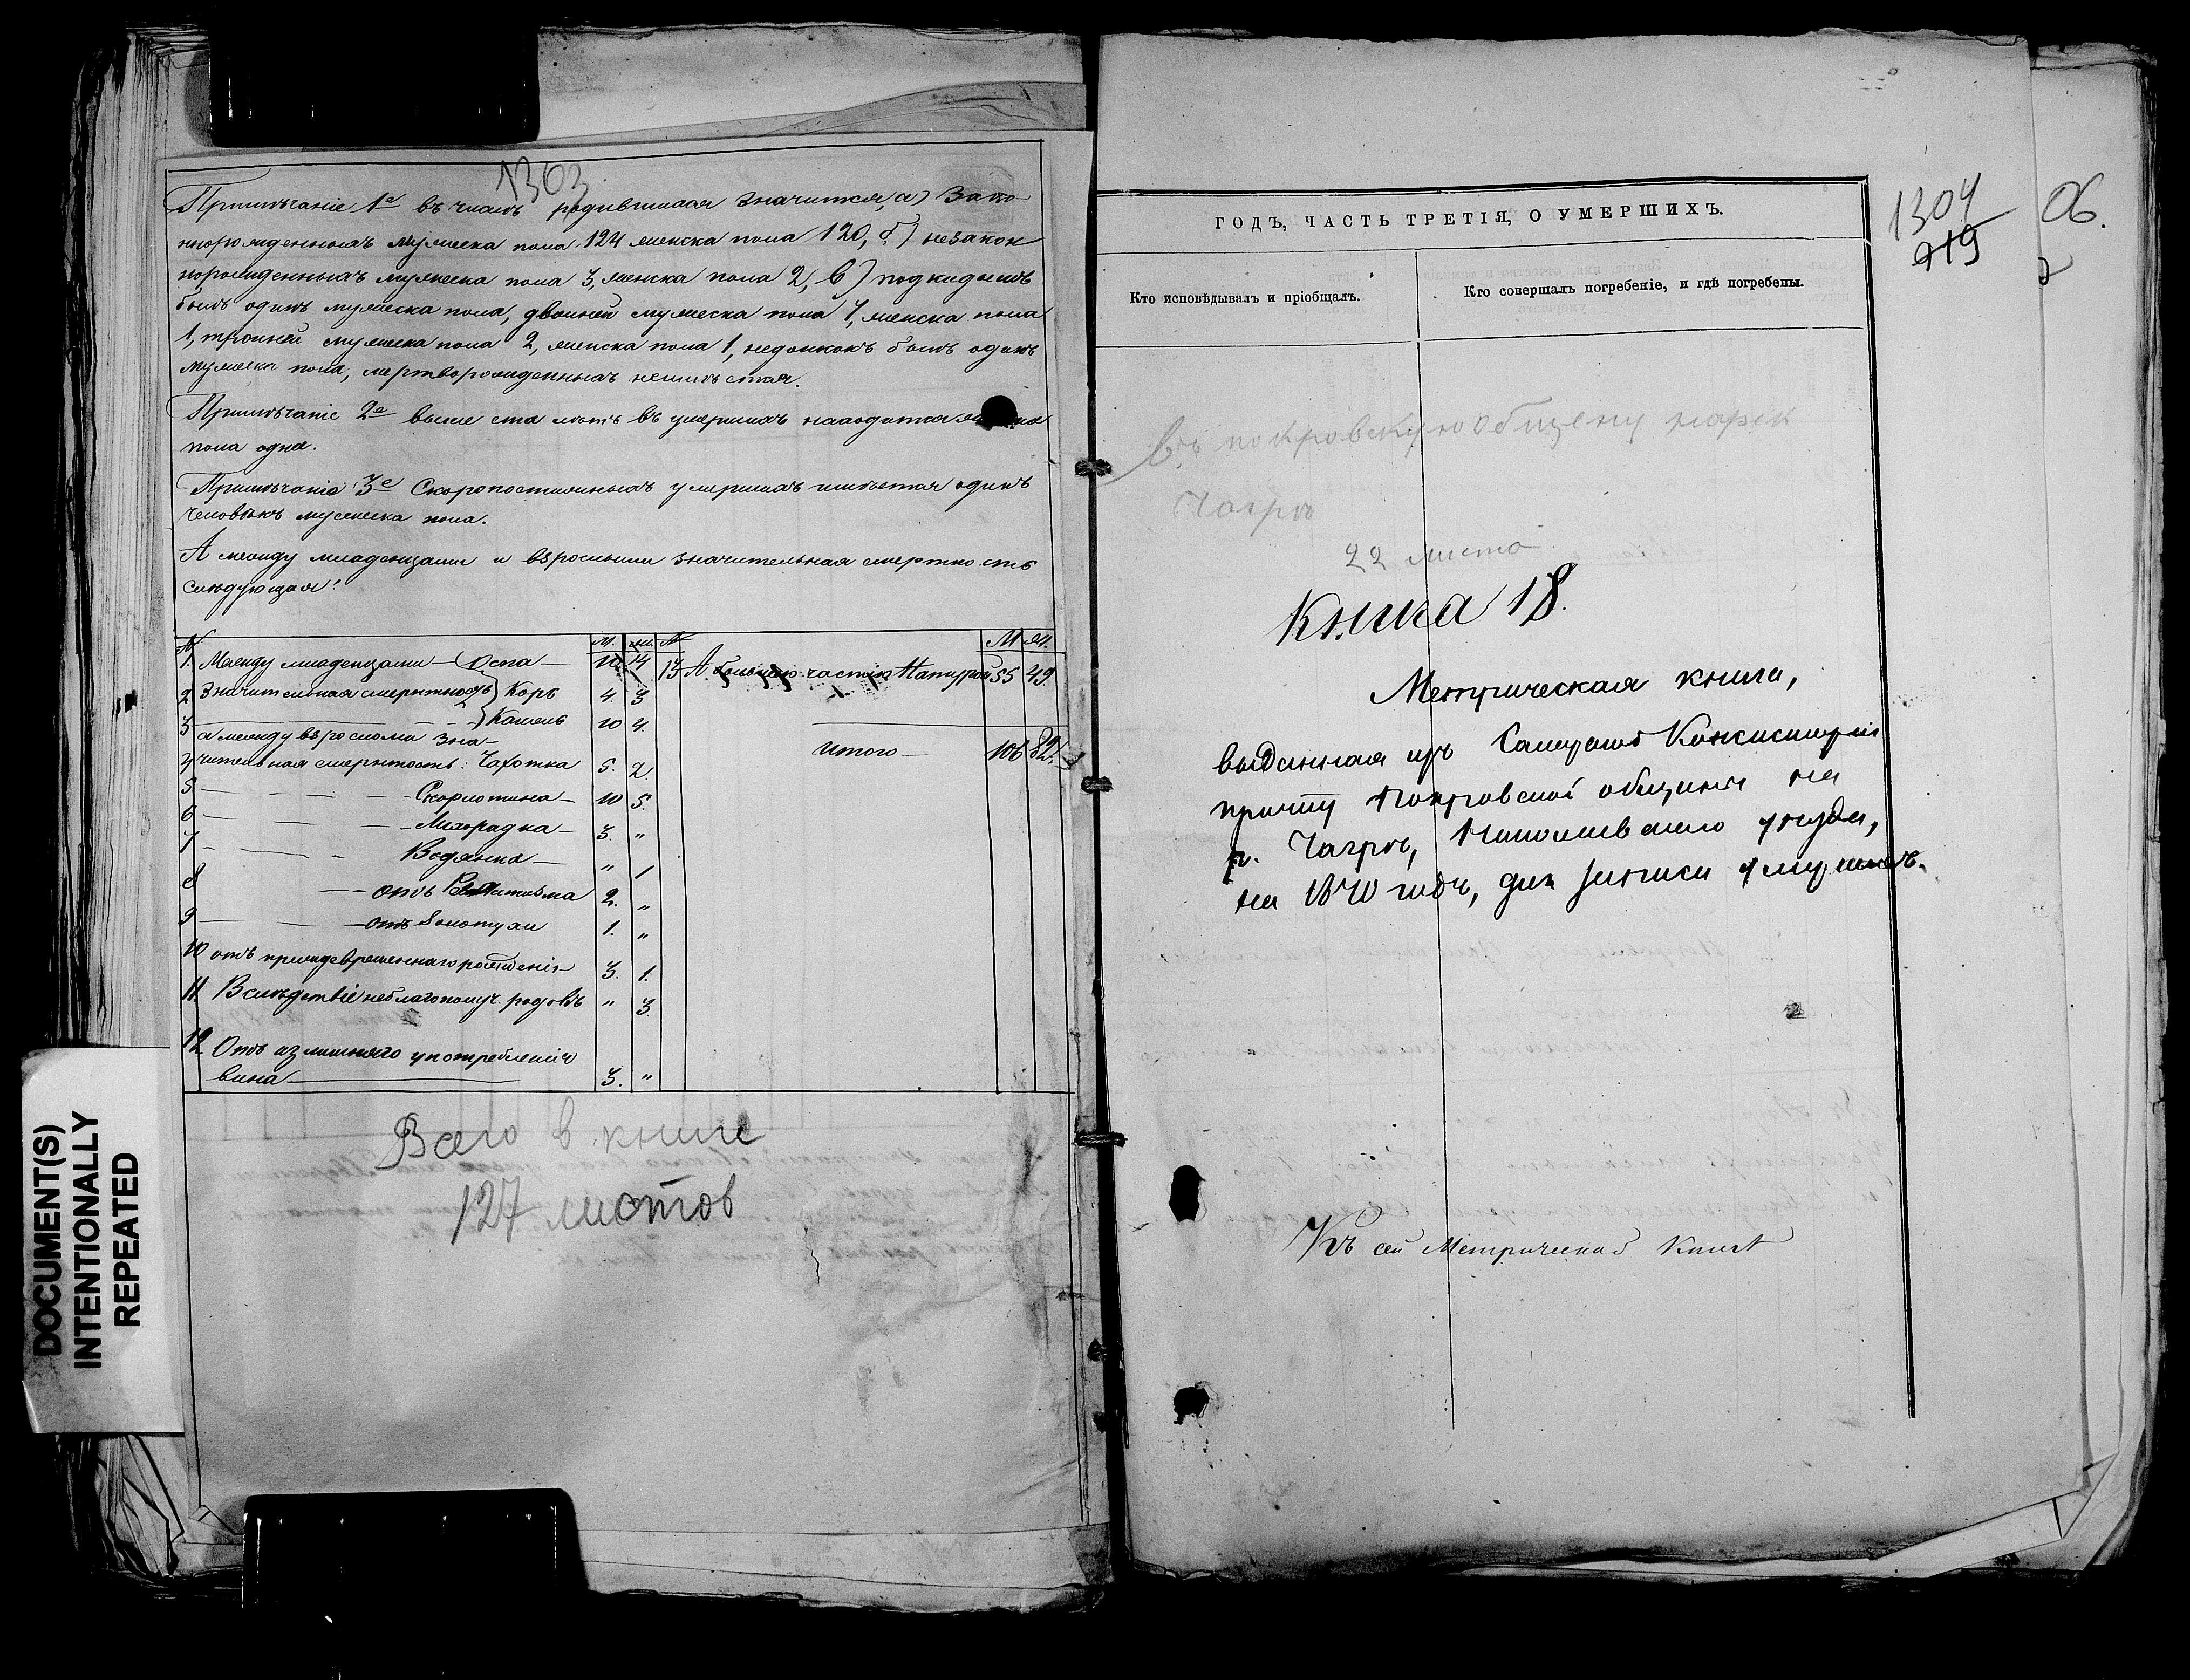 1303
Примѣчаніе 1е въ числѣ родившихся значится, а) Зако-
ннорожденныхъ мужеска пола 124 женска пола 120, б) незакон
норожденныхъ мужеска пола 3, женска пола 2, в) подкидышъ
былъ одинъ мужеска пола, двойней мужеска пола 1, женска пола
1, тройней мужеска пола 2, женска пола 1, недоносокъ былъ одинъ
мужеска пола, мертворожденныхъ неимѣется.
Примѣчаніе 2е выше ста лѣтъ въ умершихъ находится
пола одна.
Примѣчаніе 3е Скоропостижныхъ умершихъ имѣется одинъ
человѣкъ мужеска пола.
А между младенцами и взрослыми значительная смертность
слѣдующая:
№ М. Ж. № М Ж.
1. Между младенцами — Оспа — 10 14 13 А большею частію Натурой 55 49.
2 Значительная смертность Корь 4. 3
3 Кашель 10 4.
а между взрослыми зна-
4 чительная смертность: Чахотка 5. 2. Итого — 106 82.
5 — — — — Скорлотина — 10 5.
6 — — — Лихорадка — 3. "
7 — — — Водянка — " 1
8 — — отъ 2. "
9 — — отъ Золотухи 1. "
10 отъ преждевременнаго рожденія 3. 1.
11. Вслѣдствіе неблагополуч. родовъ " 3
12. Отъ излишняго употребленія
вина — 3. "
Всего в книге
127 листов
DOCUMENT(S)
INTENTIONALLY
REPEATED
1304
719
06.
2
ГОДЪ, ЧАСТЬ ТРЕТІЯ, О УМЕРШИХЪ.
Кто исповѣдывалъ и пріобщалъ.
Кто совершалъ погребеніе, и гдѣ погребены.
Въ покровскую общену нарек
Чагрѣ
22 листа
Книга 18.
Метрическая книга,
выданная изъ Самарской Консисторіи
причту Покровской общины на
р. Чагрѣ, Николаевскаго уезда,
на 1870 годъ, для записи умершихъ.
Къ сей Метрической Книгѣ